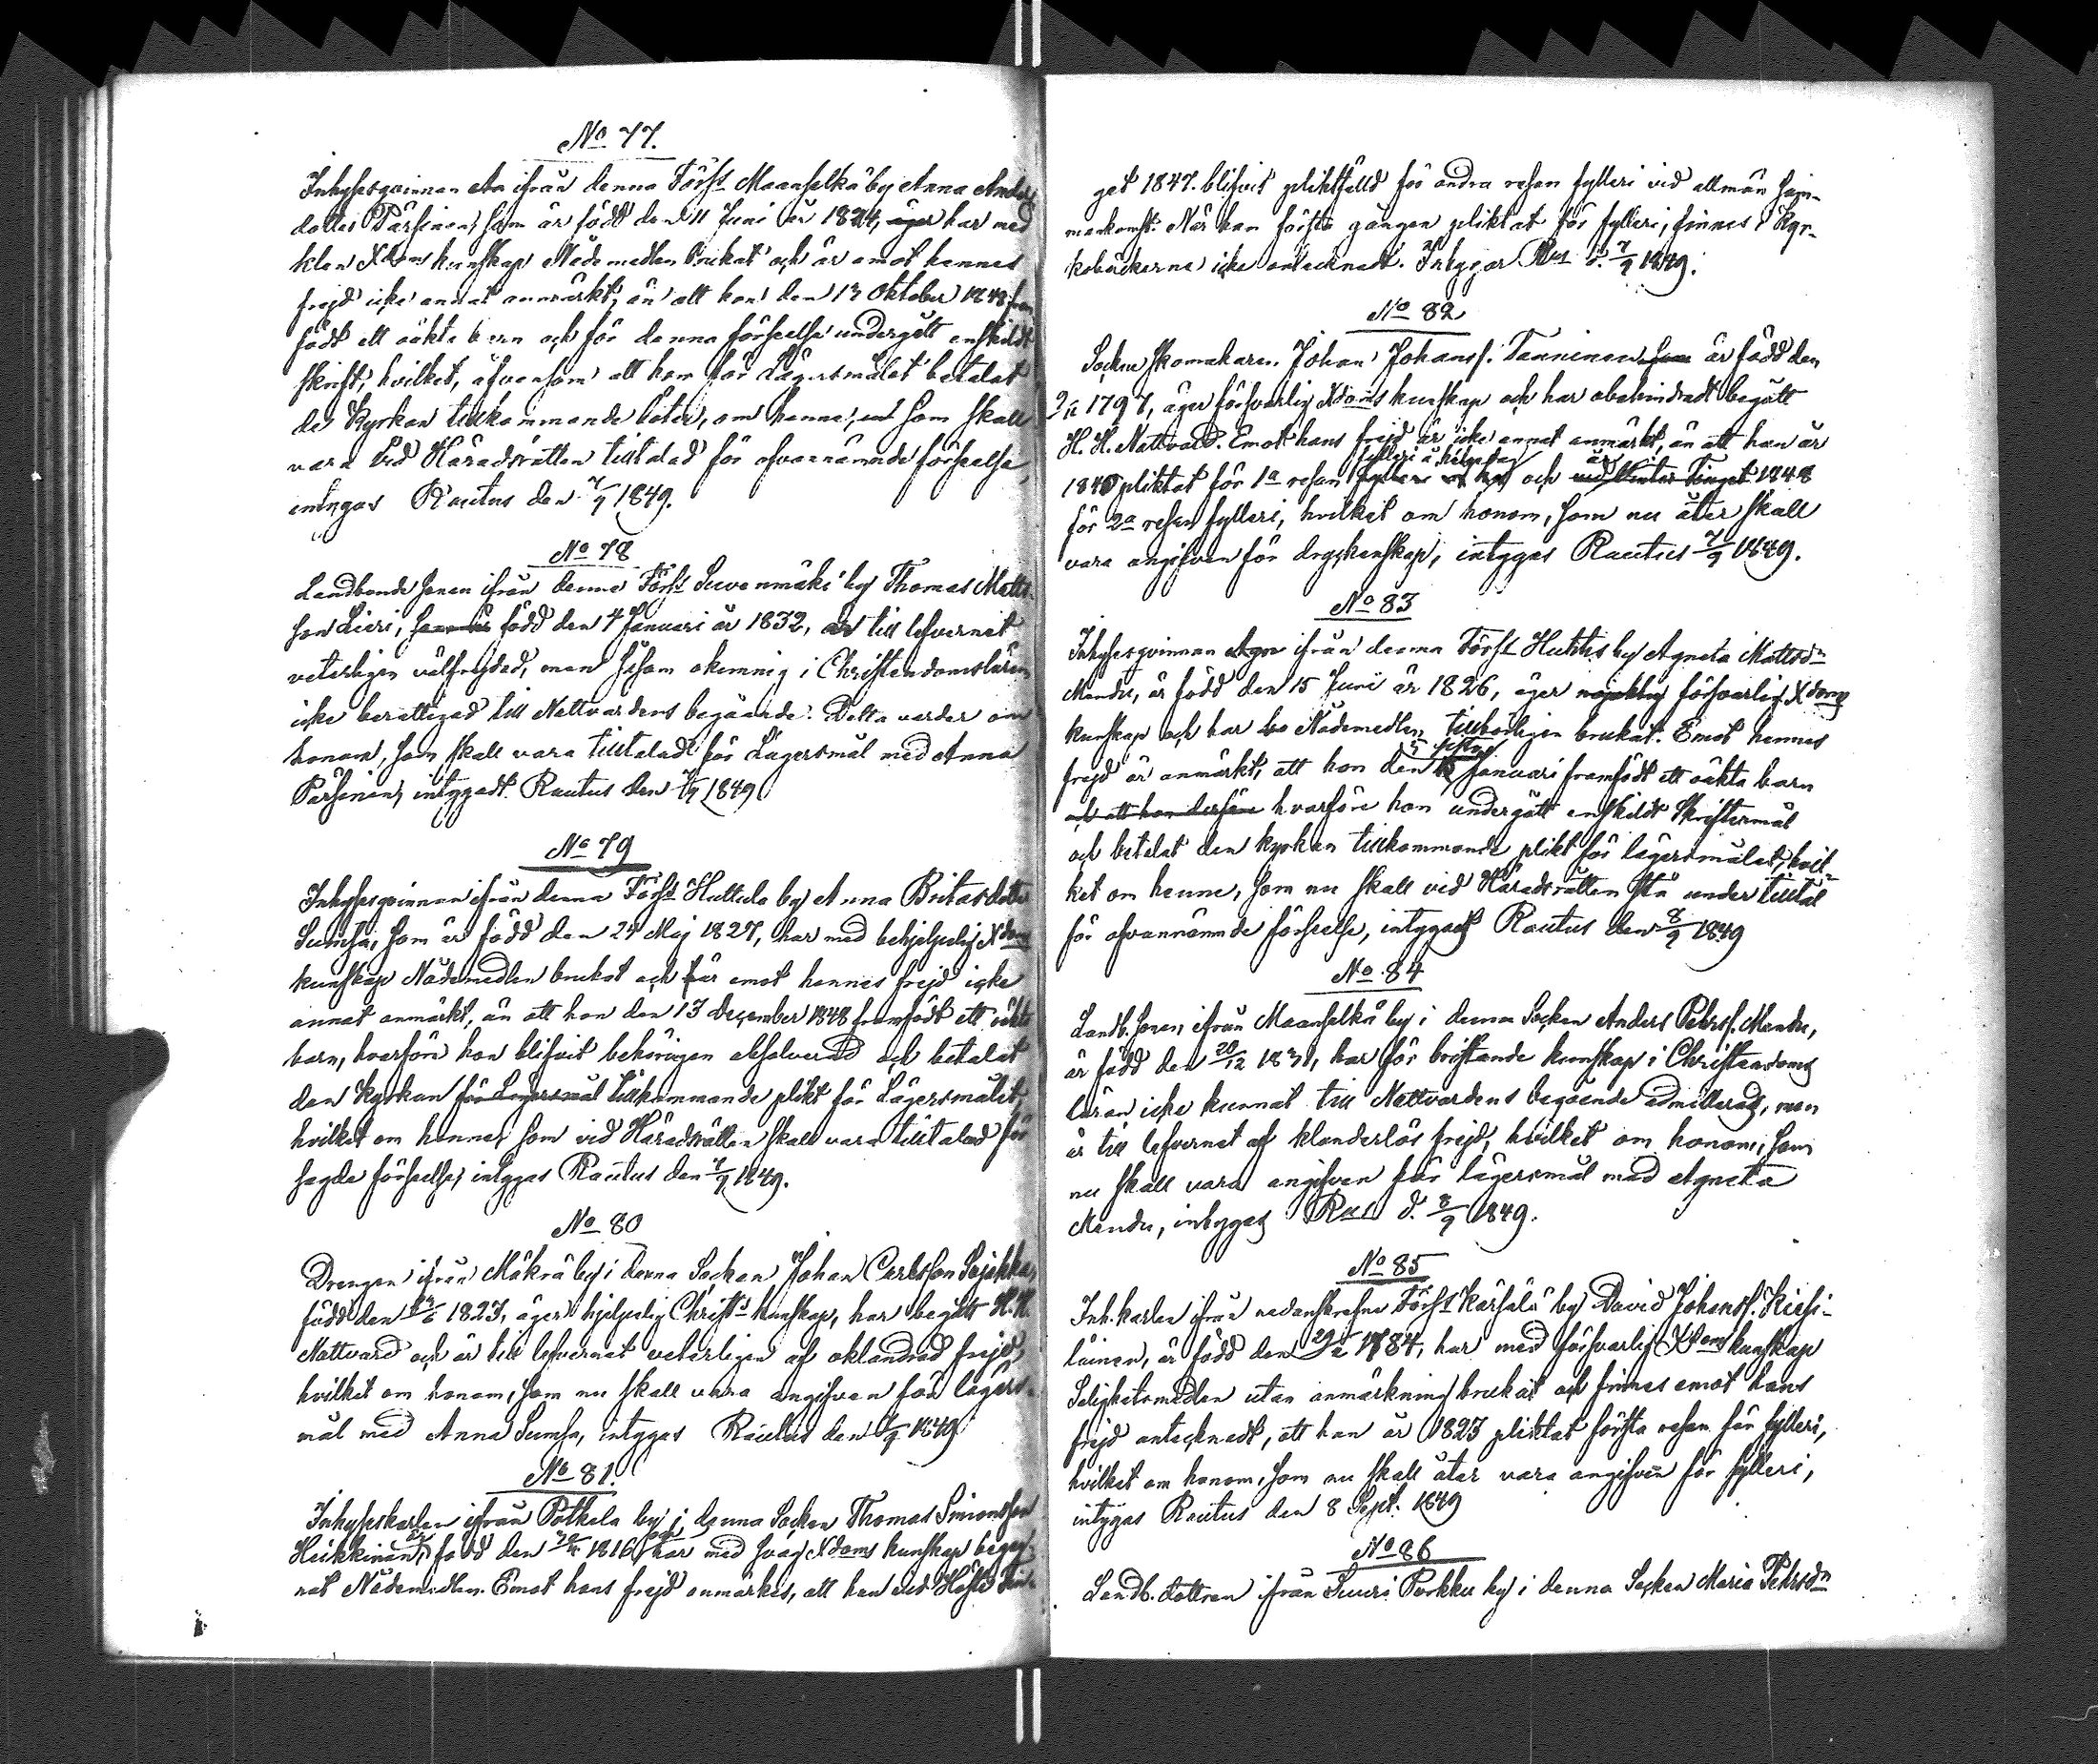 No 77.
Inhysesqvinnan Ana ifrån denna Förs:s Maanselkä by Anna Anders
dotter Pärsinen, som är född den 11 Juni år 1824, äger har med
klen Xdoms kunskap Nådemedlen brukat och är emot hennes
frejd icke annat anmärkt, än att hon den 13 Oktober 1848 fram
födt ett oäkta barn och för denna förseelse undergått enskildt
skrift, hvilket, äfvensom att hon för Lägersmålet betalat
de Kyrkan tillkommande böter, om henne, som skall
vara vid Häradsrätten tilltalad för ofvannämnde förseelse,
intygas Rautus den 7/9 1849.
No 78
Landbonde sonen ifrån denna Förs:s Suvenmäki by Thomas Matts
son Lieri, som är född den 4 Januari år 1832, är till lefvernet
veterligen välfrejdad, men såsom okunnig i Christendomsläran
icke berättigad till Nattvardens begående. Detta varder om
honom, som skall vara tilltalad för Lägersmål med Anna
Pärsinen, intygadt. Rautus den 7/9 1849
No 79
Inhysesqvinnan ifrån denna Förs:s Huttula by Anna Britasdotter
Sumsa, som är född den 27 Maj 1827, har med behjelpelig Xdoms
kunskap Nådemedlen brukat och är emot hennes frejd icke
annat anmärkt, än att hon den 13 December 1848 framfödt ett oäkta
barn, hvarföre hon blifvit behörigen absolverad och betalat
den Kyrkan för Lägersmål tillkommande plikt för Lägersmålet,
hvilket om henne, som vid Häradsrätten skall vara tilltalad för
sagde förseelse, intygas Rautus den 7/9 1849.
No 80
Drengen ifrån Mäkrä by i denna Socken Johan Carlsson
född den 1823, äger hjelpelig Christ:s kunskap, har begått H. H.
Nattvard och är till lefvernet veterligen af oklandrad frejd,
hvilket om honom, som nu skall vara angifven för lägers-
mål med Anna Sumsa, intygas Rautus den 7/9 1849
No 81.
Inhyseskarlen ifrån Potkela by i denna Socken Thomas Simonsson
Heikkinen, är född den 1816, och har med svag Xdoms kunskap begag-
nat Nådemedlen. Emot hans frejd anmärkes, att han vid Höste Tin-
get 1847. blifvit pliktfälld för andra resan fylleri vid allmän sam-
mankomst. När han första gången pliktat för fylleri, finnes i Kyr-
koböckerna icke antecknadt. Intygar Rus d. 7/9 1849.
No 82
Socken skomakaren Johan Johanss. Tanninen som är född den
1797, äger försvarlig Xdoms kunskap och har obehindradt begått
H. H. Nattvard. Emot hans frejd är icke annat anmärkt, än att han år
1840 pliktat för 1a resan fylleri å helgedag och år vid Vinter Tinget 1848
för 2a resan fylleri, hvilket om honom, som nu åter skall
vara angifven för dryckenskap, intygas Rautus 7/9 1849.
No 83
Inhysesqvinnan Agn ifrån denna Förs:s Huttis by Agneta Mattsdr
Mandu, är född den 15 Juni år 1826, äger nöjaktig försvarlig Xdoms
kunskap och har Nådemedlen tillbörligen brukat. Emot hennes
frejd är anmärkt, att hon den Januari framfödt ett oäkta barn
och att hon derföre hvarföre hon undergått enskildt Skriftermål
och betalat den kyrkan tillkommande plikt för lägersmålet, hvil-
ket om henne, som nu skall vid Häradsrätten stå under tilltal
för ofvannämnde förseelse, intygas Rautus den 8/9 1849
No 84
Landb. sonen ifrån Maanselkä by i denna Socken Anders Pehrss. Mandu,
är född den 20/12 1831, har för bristande kunskap i Christendoms
läran icke kunnat till Nattvardens begående admitteras, men
är till lefvernet af klanderlös frejd, hvilket om honom, som
nu skall vara angifven för lägersmål med Agneta
Mandu, intygas Rus d. 8/9 1849.
No 85
Inh.karlen ifrån nedanskrefne Förs:s Kärsälä by David Johanss. Kiesi-
läinen, är född den 1784, har med försvarlig Xdoms kunskap
Salighetsmedlen utan anmärkning brukat och finnes emot hans
frejd antecknadt, att han år 1823 pliktat första resan för fylleri,
hvilket om honom, som nu skall åter vara angifven för fylleri,
intygas Rautus den 8 Sept. 1849
No 86
Landb. dottren ifrån Suuri Porkku by i denna Socken Maria Pehrsdr